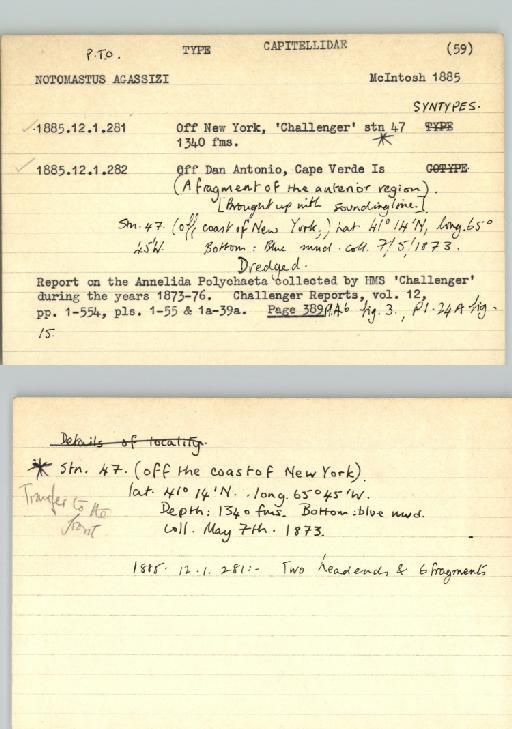 P.T.O. TYPE CAPITELLIDAE (59)
NOTOMASTUS AGASSIZI McIntosh 1885
SYNTYPES.
1885.12.1.281 Off New York, 'Challenger' stn 47 TYPE
1340 fms. *
1885.12.1.282 Off Dan Antonio, Cape Verde Is COTYPE
(A fragment of the anterior region).
[Brought up with sounding line.]
Stn. 47. (off coast of New York,) Lat. 41° 14'N, long. 65°
45'W. Bottom: Blue mud. coll. 7/5/1873.
Dredged.
Report on the Annelida Polychaeta collected by HMS 'Challenger'
during the years 1873-76. Challenger Reports, vol. 12,
pp. 1-554, pls. 1-55 & 1a-39a. Page 389 fig. 3., Pl. 24A fig.
15.
Details of locality.
* Stn. 47. (off the coast of New York).
Transfer to the front
lat. 41° 14'N. long. 65° 45'W.
Depth: 1340 fms. Bottom: blue mud.
Coll. May 7th. 1873.
1885. 12. 1. 281:- Two head ends & 6 fragments